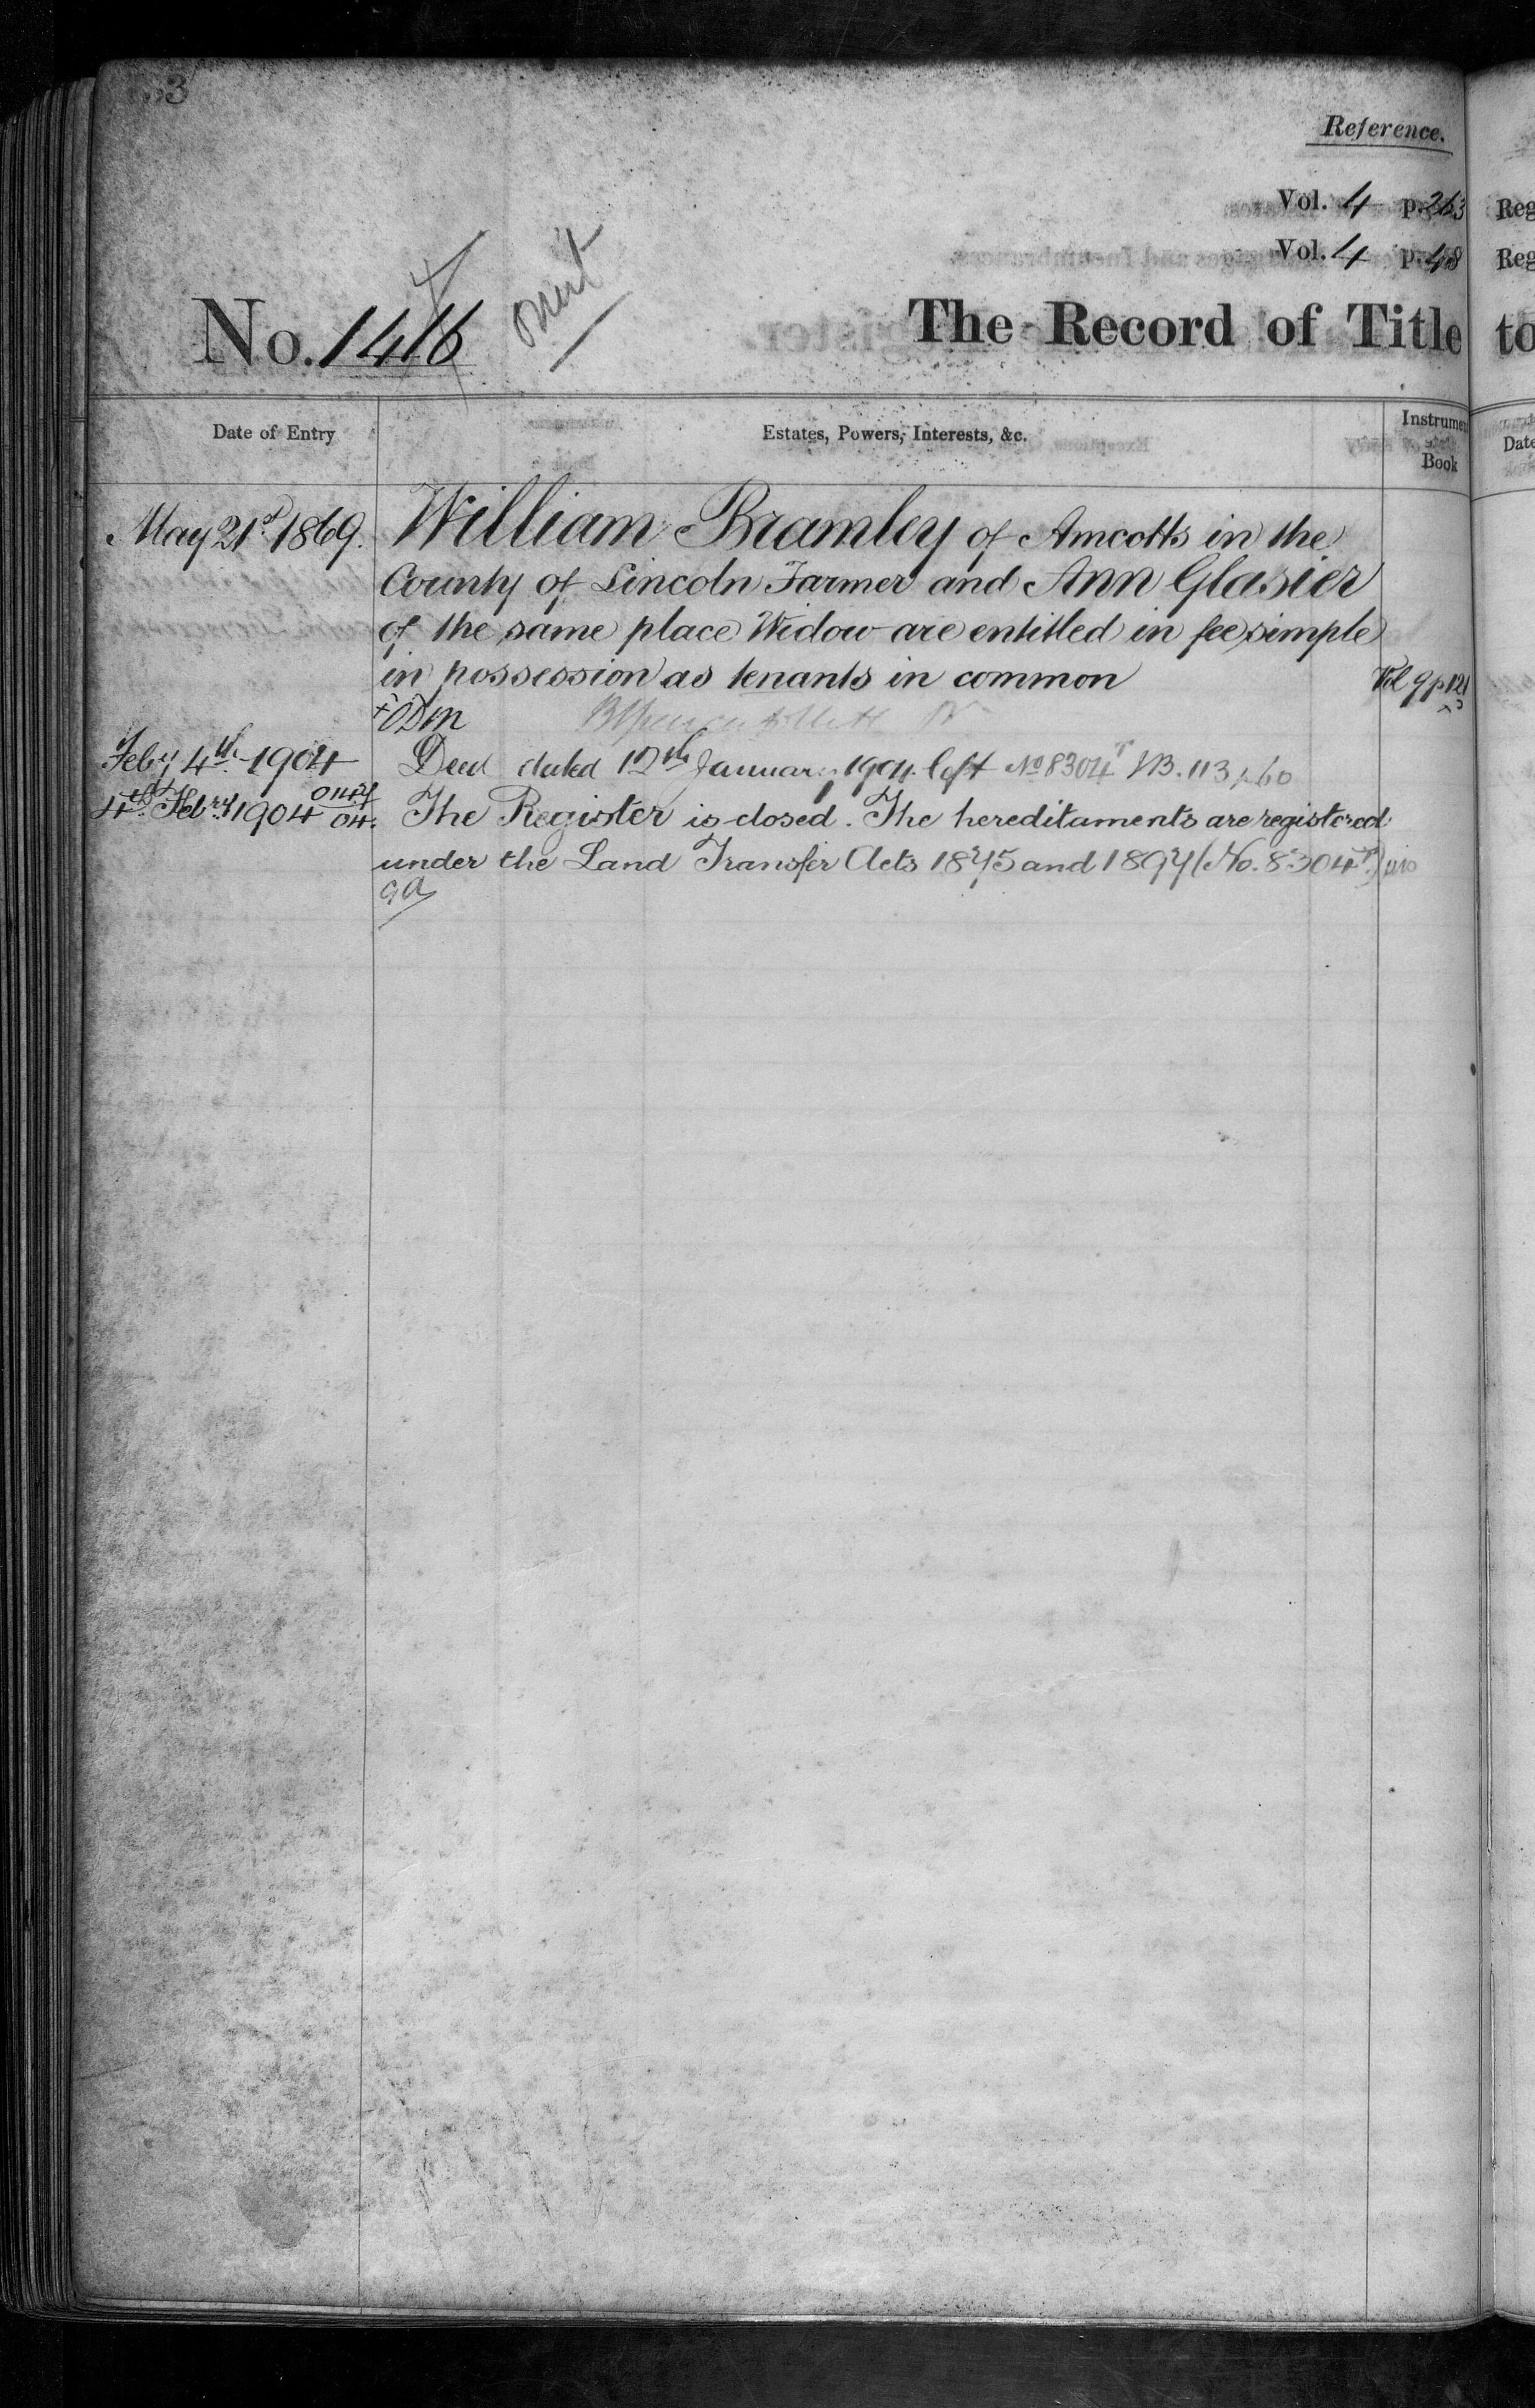 3
Reference.
Vol. 4 p. 263
Vol. 4 p. 48
omit
No. 1416
The Record of Title
Date of Entry
Estates, Powers, Interests, &c.
Instrument
Book
May 21st 1869.
William Bramley of Amcotts in the
County of Lincoln Farmer and Ann Glasier
of the same place Widow are entitled in fee simple
in possession as tenants in common
Vol 9 p 121
Feby 4th 1904
Deed dated 12th January 1904 left No 8304
4th Febry 1904
The Register is closed. The hereditaments are registered
under the Land Transfer Acts 1875 and 1897 (No. 8304)
Reg
Reg
to
Date